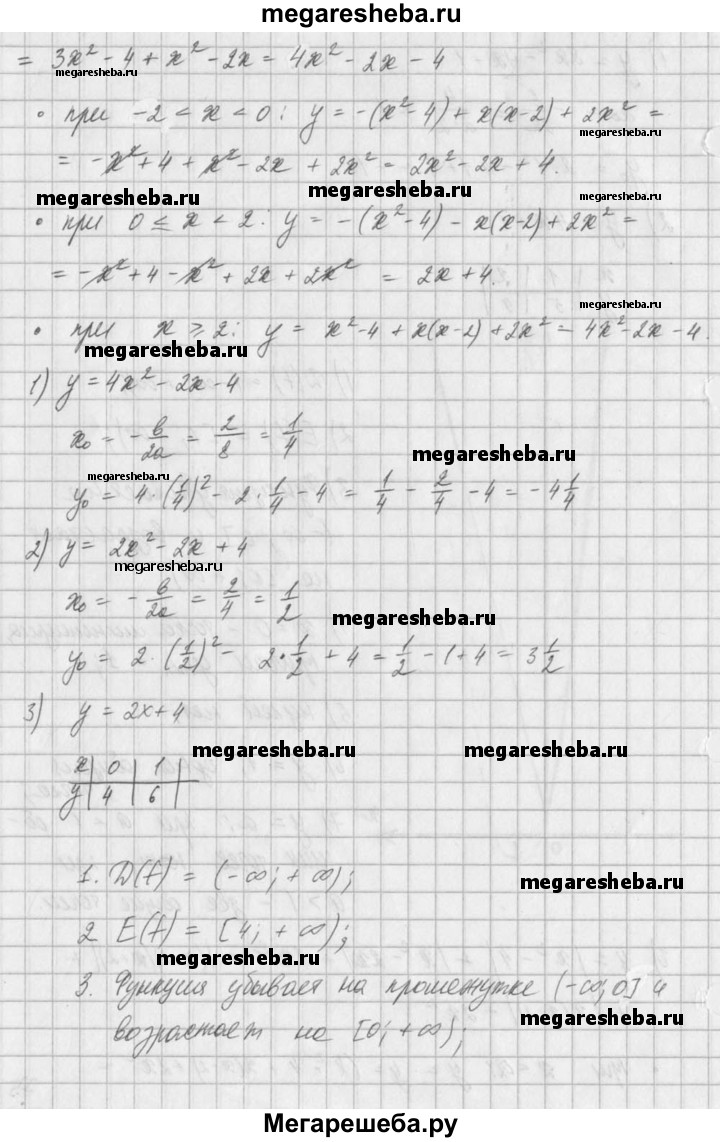 megaresheba.ru
= 3x² - 4 + x² - 2x = 4x² - 2x - 4
megaresheba.ru megaresheba.ru
• при -2 < x < 0: y = -(x² - 4) + x(x-2) + 2x² =
= -x² + 4 + x² - 2x + 2x² = 2x² - 2x + 4.
megaresheba.ru megaresheba.ru megaresheba.ru
• при 0 ≤ x < 2: y = -(x² - 4) - x(x-2) + 2x² =
= -x² + 4 - x² + 2x + 2x² = 2x + 4.
• при x ≥ 2: y = x² - 4 + x(x-2) + 2x² = 4x² - 2x - 4.
megaresheba.ru megaresheba.ru
1) y = 4x² - 2x - 4
x₀ = -в/2a = 2/8 = 1/4
megaresheba.ru
megaresheba.ru
y₀ = 4·(1/4)² - 2·1/4 - 4 = 1/4 - 2/4 - 4 = -4 1/4
2) y = 2x² - 2x + 4
megaresheba.ru
x₀ = -в/2a = 2/4 = 1/2
megaresheba.ru
y₀ = 2·(1/2)² - 2·1/2 + 4 = 1/2 - 1 + 4 = 3 1/2
3) y = 2x + 4
megaresheba.ru megaresheba.ru
x | 0 | 1 |
y | 4 | 6 |
1. D(f) = (-∞; +∞);
megaresheba.ru
2 E(f) = [4; +∞);
megaresheba.ru
3. Функция убывает на промежутке (-∞; 0] и
возрастает на [0; +∞);
megaresheba.ru
Мегарешеба.ру